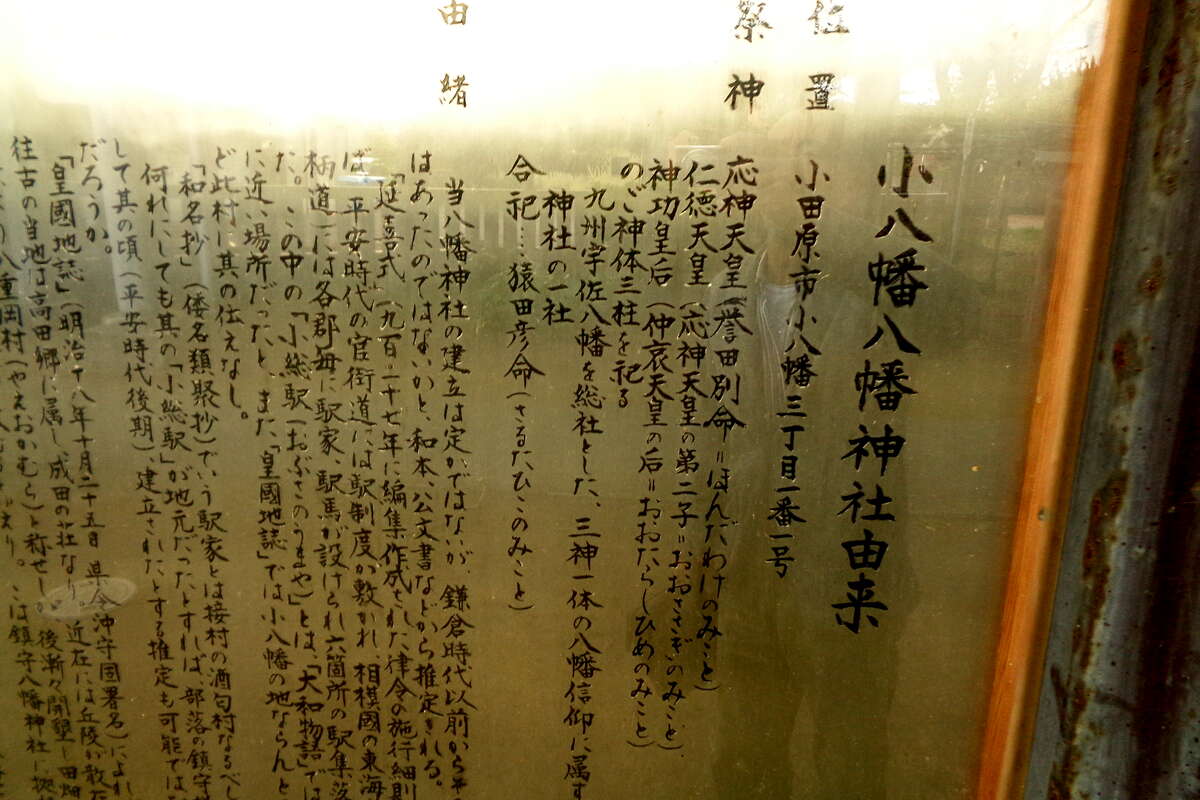 小八幡八幡神社由来
位置 小田原市小八幡三丁目一番一号
祭神 応神天皇(誉田別命=ほんだわけのみこと)
仁徳天皇(応神天皇の第二子=おおささぎのみこと)
神功皇后(仲哀天皇の后=おおたらしひめのみこと)
のご神体三柱を祀る
九州宇佐八幡を総社とした、三神一体の八幡信仰に属す
神社の一社
合祀…猿田彦命(さるたひこのみこと)
由緒
当八幡神社の建立は定かではないが、鎌倉時代以前から
はあったのではないかと、和本、公文書などから推定される。
「延喜式」(九百二十七年に編集作成された律令の施行細則
ば、平安時代の官街道には駅制度が敷かれ、相模國の東海
柄道)には各郡毎に駅家、駅馬が設けられ六箇所の駅集落
た。この中の「小総駅(おぶさのうまや)」とは、「大和物語」では
に近い場所だったと、また「皇國地誌」では小八幡の地ならんと
ど此村に其の仕えなし。
「和名抄」(倭名類聚抄)でいう駅家とは接村の酒匂村なるべし
何れにしても其の「小総駅」が地元だったとすれば、部落の鎮守
して其の頃(平安時代後期)建立されたとする推定も可能では
だろうか。
「皇國地誌」(明治十八年十月二十五日 県令沖守固署名)によれ
往古の当地は高田郷に属し成田の荘なり。近在には丘陵が散
八重岡村(やえおかむら)と称せしが、後漸々開墾し田畑
は鎮守八幡神社に拠